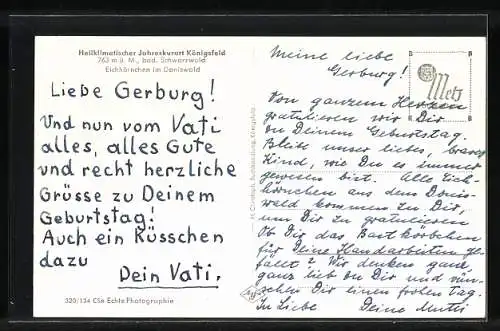 Heilklimatischer Jahreskurort Königsfeld
763 m ü. M., bad. Schwarzwald
Eichhörnchen im Doniswald
Liebe Gerburg!
Und nun vom Vati
alles, alles Gute
und recht herzliche
Grüsse zu Deinem
Geburtstag!
Auch ein Küsschen
dazu
Dein Vati.
320/134 CSn Echte Photographie
Meine liebe
Gerburg!
Von ganzem Herzen
gratulieren wir Dir
zu Deinem Geburtstag.
Bleibe unser liebes, braves
Kind, wie Du es immer
gewesen bist. Alle Eich-
hörnchen aus dem Donis-
wald kommen zu Dir,
um Dir zu gratulieren
Ob Dir das Bastkörbchen
für Deine Handarbeiten ge-
fällt? Wir denken ganz,
ganz lieb an Dich und wün-
schen Dir einen frohen Tag.
In Liebe Deine Mutti
Metz